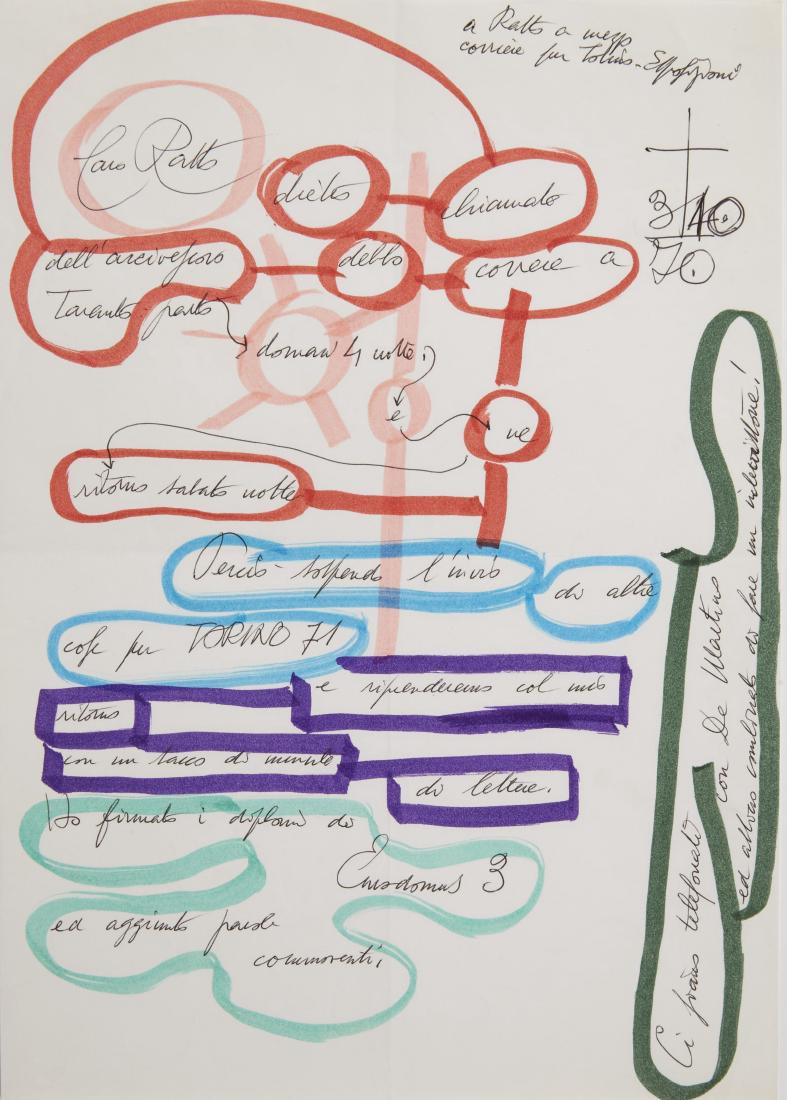 a Ratto a mezzo
corriere per Torino - Esposizioni
3/10
70.
Caro Ratto
dietro chiamata
dell'arcivescovo debbo correre a
Taranto: parto
doman 4 notte.
e ne
ritorno sabato notte
Perciò sospendo l'invio di altre
cose per TORINO 71
e riprenderemo col mio
ritorno
con un sacco di minute
di lettere.
Ho firmato i diplomi di
Eurodomus 3
ed aggiunto parole
commoventi.
Ci siamo telefonati con De Martino
ed allora combinato di fare un intervistone!